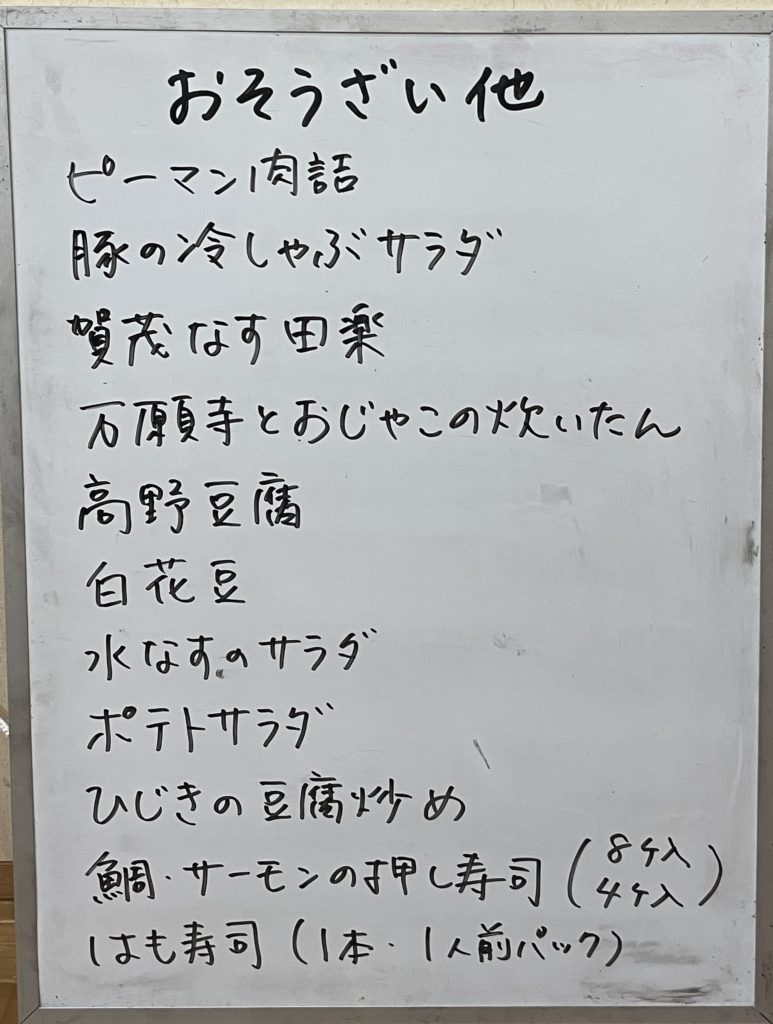 おそうざい他
ピーマン肉詰
豚の冷しゃぶサラダ
賀茂なす田楽
万願寺とおじゃこの炊いたん
高野豆腐
白花豆
水なすのサラダ
ポテトサラダ
ひじきの豆腐炒め
鯛・サーモンの押し寿司(8ヶ入 4ヶ入)
はも寿司(1本・1人前パック)